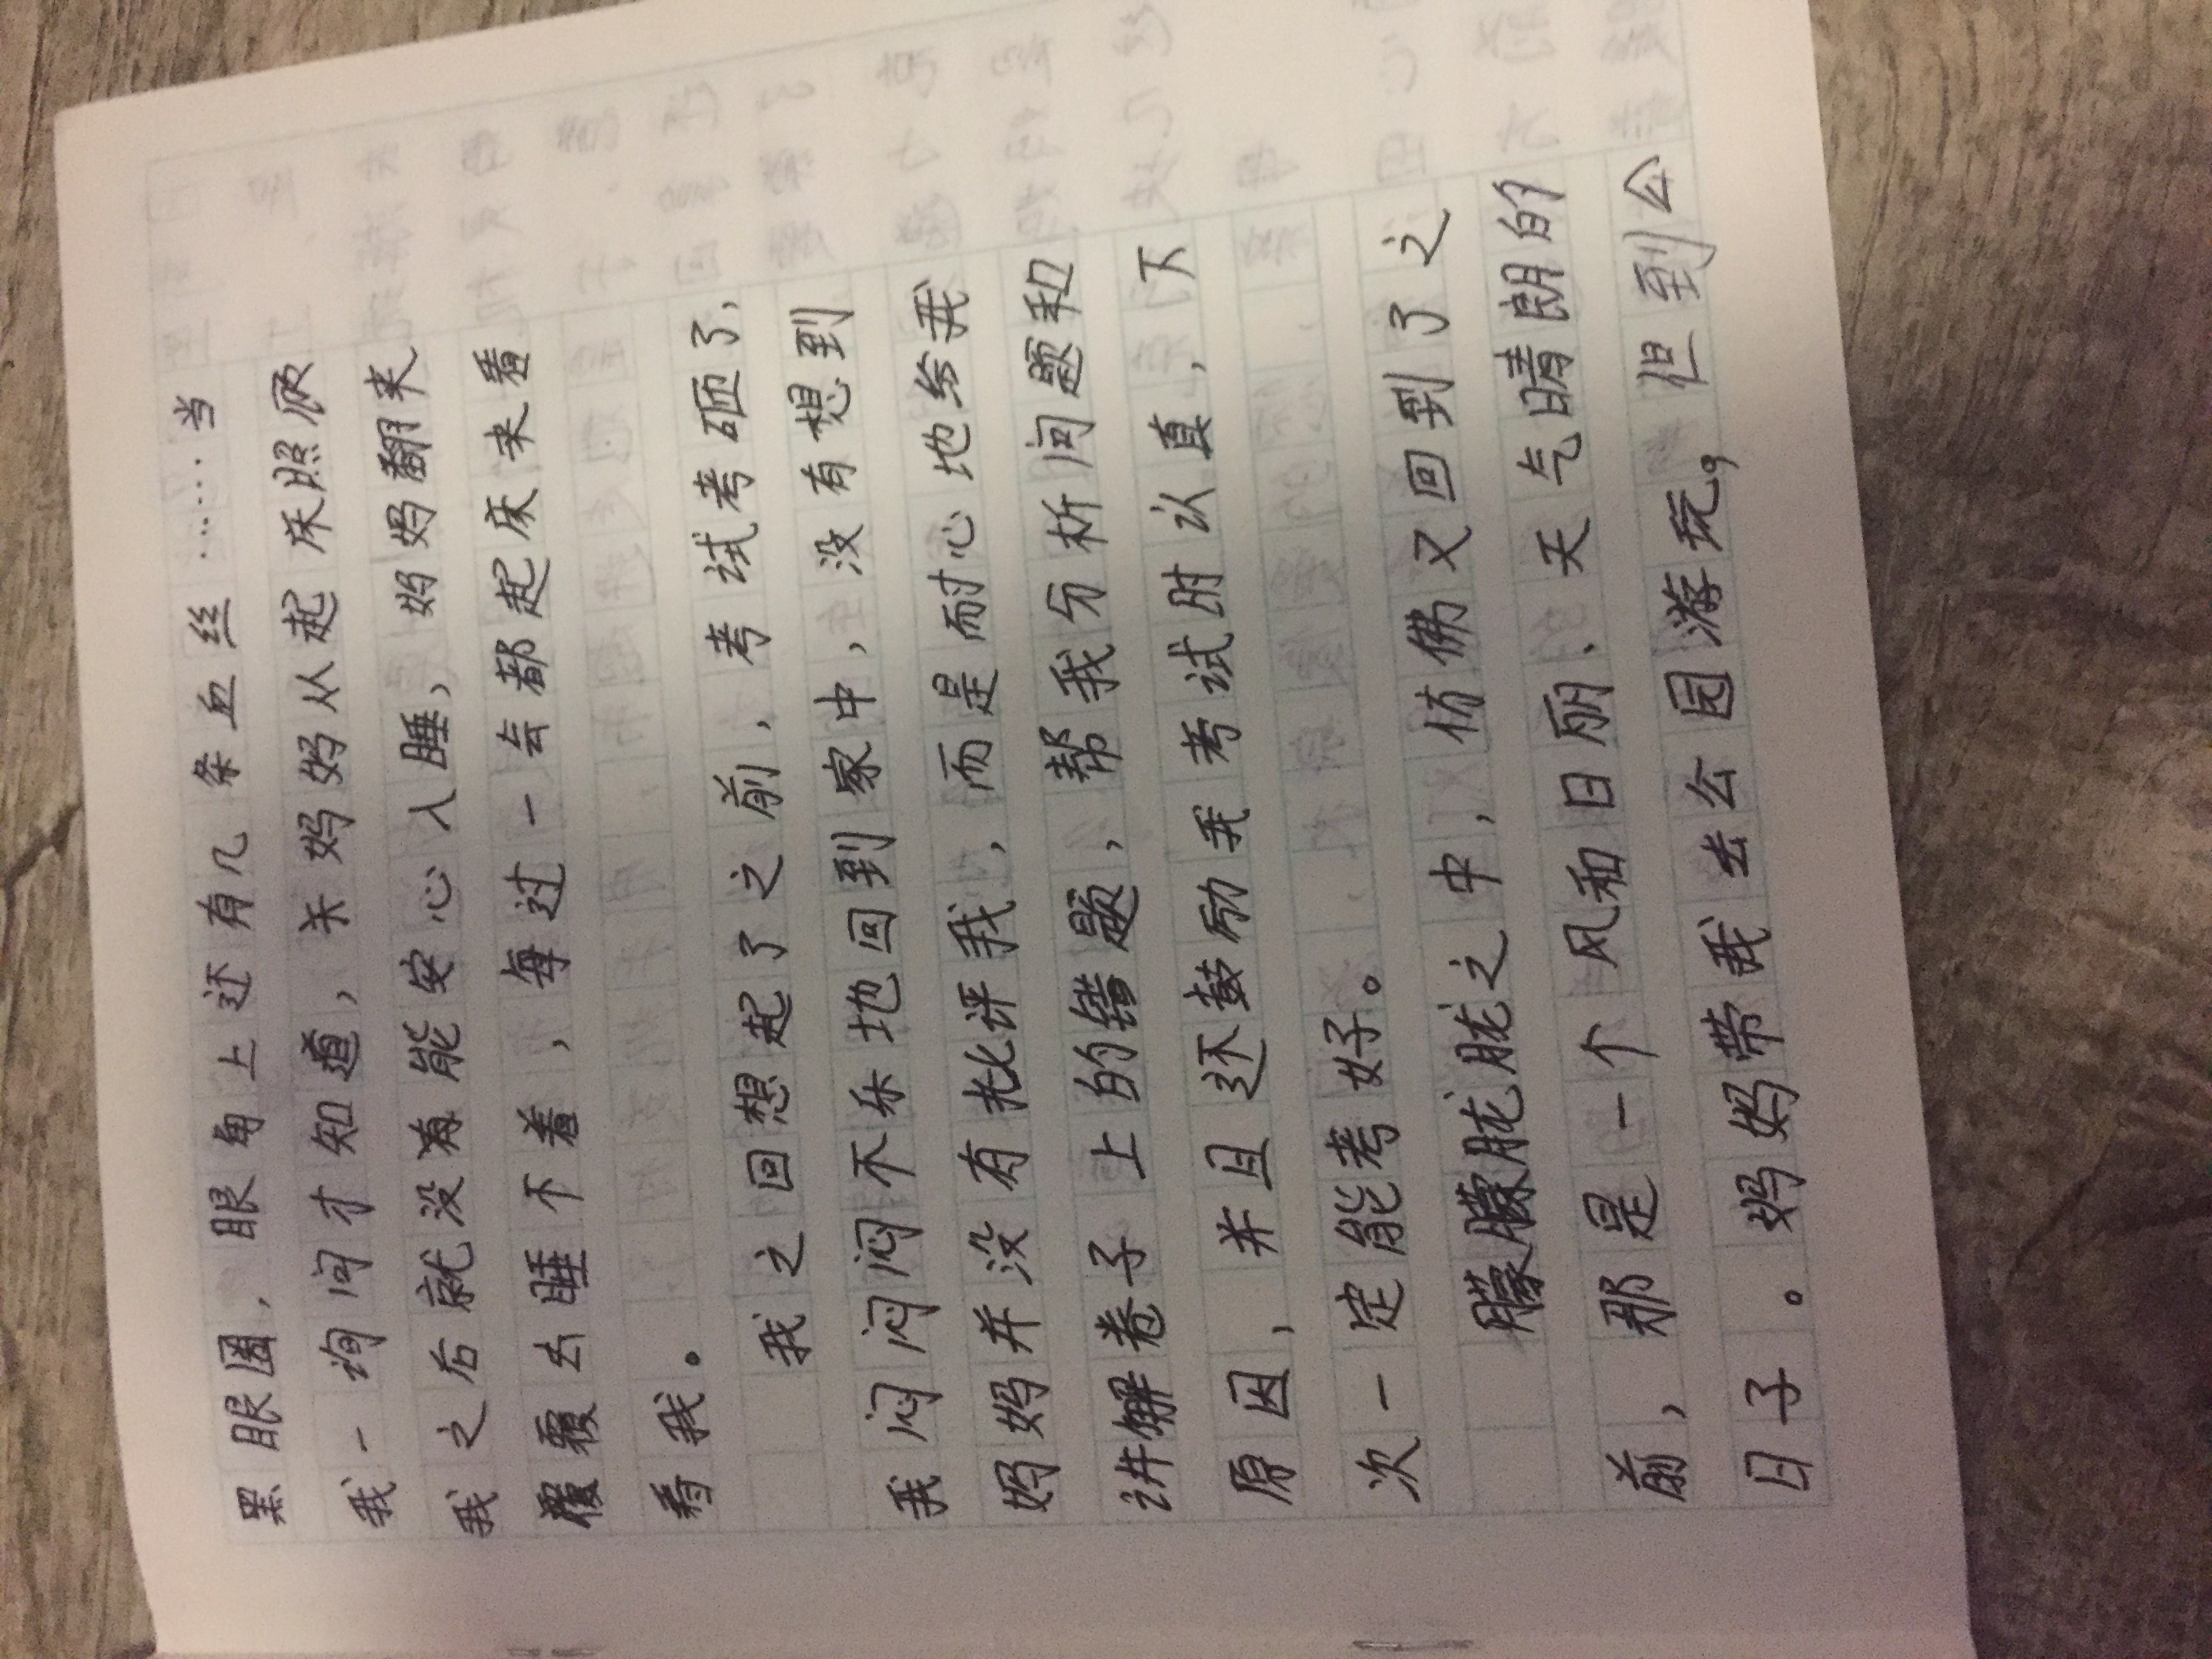 黑眼圈，眼角上还有几条血丝……当
我一询问才知道，关妈妈从起床照顾
我之后就没有能安心入睡，妈妈翻来
覆去睡不着，每过一会都起床来看
看我。
我之回想起了之前，考试考砸了，
我闷闷不乐地回到家中，没有想到
妈妈并没有批评我，而是耐心地给我
讲解卷子上的错题，帮我分析问题和
原因，并且还鼓励我考试时认真，下
次一定能考好。
朦朦胧胧之中，仿佛又回到了之
前，那是一个风和日丽、天气晴朗的
日子。妈妈带我去公园游玩，但到公